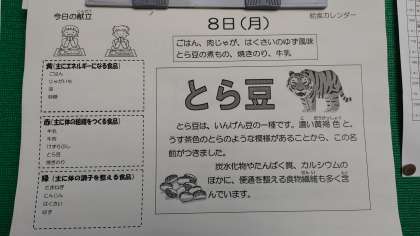 今日の献立
給食カレンダー
8日(月)
ごはん、肉じゃが、はくさいのゆず風味
とら豆の煮もの、焼きのり、牛乳
黄(主にエネルギーになる食品)
ごはん
じゃがいも
油
砂糖
赤(主に体の組織をつくる食品)
牛乳
牛肉
けずりぶし
とら豆
焼きのり
緑(主に体の調子を整える食品)
たまねぎ
にんじん
はくさい
ゆず
とら豆
とら豆は、いんげん豆の一種です。濃い黄褐色と、
うす茶色のとらのような模様があることから、この名
前がつきました。
炭水化物やたんぱく質、カルシウムの
ほかに、便通を整える食物繊維も多く含
んでいます。